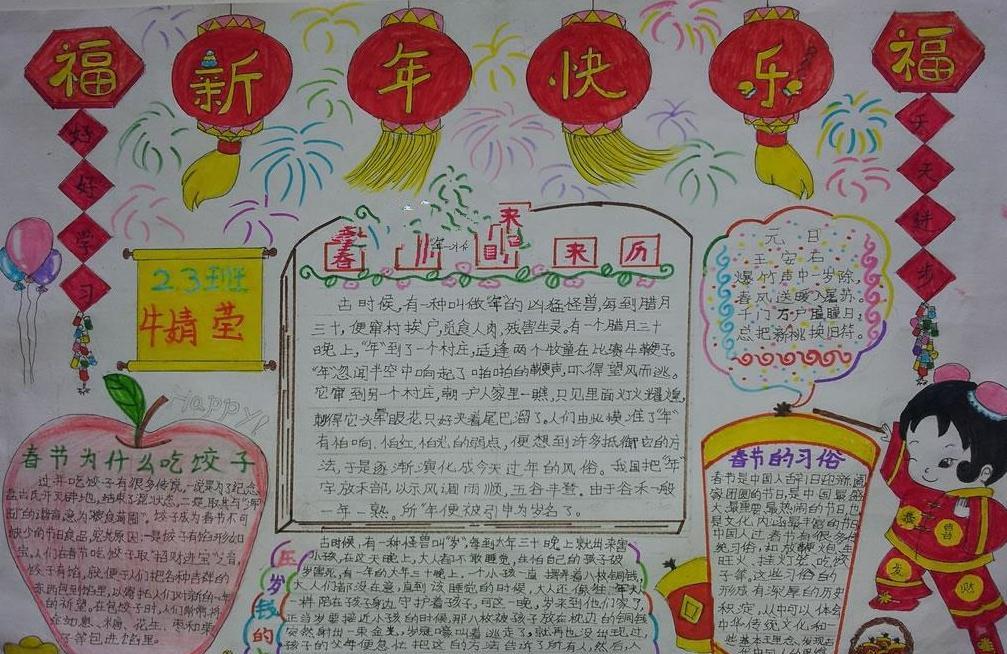 福 新 年 快 乐 福
好好学习
天天进步
2.3班
牛婧莹
春节 来历
元 日
王 安 石
爆竹声中一岁除,
春风送暖入屠苏。
千门万户曈曈日,
总把新桃换旧符。
古时候,有一种叫做"年"的凶猛怪兽,每到腊月
三十,便窜村挨户,觅食人肉,残害生灵。有一个腊月三十
晚上,"年"到了一个村庄,适逢两个牧童在比赛牛鞭子。
"年"忽闻半空中响起了啪啪的鞭声,吓得望风而逃。
它窜到另一个村庄,
只见里面灯火辉煌,
只好夹着尾巴溜了。人们由此摸准了"年"
有怕响,怕红,怕光的弱点,便想到许多抵御它的方
法,于是逐渐演化成今天过年的风俗。我国把"年"
字放禾部,以示风调雨顺,五谷丰登。由于谷禾一般
一年一熟。所"年"便被引申为岁名了。
Happy!
春节为什么吃饺子
过年吃饺子有很多传说,一说是为了纪念
盘古氏开天辟地,结束了混沌状态,二是取其与"浑
囤"的谐音,意为"粮食满囤"。饺子成为春节不可
缺少的节日食品,究其原因:一是饺子有馅形如
宝,人们在春节吃饺子取"招财进宝"之音,
饺子有馅,就便于人们把各种吉祥的
东西包到馅里,以寄托人们对新的一年
的祈望。在包饺子时,人们常常将
如意、糖、花生、枣和栗
子等包进馅里。
春节的习俗
春节是中国人
家团圆的节日,是中国最盛
大、最重要、最热闹的节日,也
是文化内涵最丰富的节日
中国人过春节有很多传
统习俗,如放鞭炮、
挂灯笼、吃饺
子等。这些习俗的
形成有深厚的历史
积淀,从中可以体会
中华传统文化和一
压岁钱的
古时候,有一种怪兽叫"岁",每到大年三十晚上就出来害
小孩,在这天晚上,大人都不敢睡觉,生怕自己的孩子被
岁害死,有一年的大年三十晚上,一个小孩一直摆弄着八枚铜钱,
大人们都没在意,直到该睡觉的时候,大人还像往年
一样陪在孩子身边守护着孩子,可这一晚,岁来到他们家了,
正当岁要接近小孩的时候,那八枚被孩子放在枕边的铜钱
突然射出一束金光,岁疑嚎叫着逃走了,就再也没出现过,
孩子的父母便急忙把这的方法告诉了所有人,然后,人
财